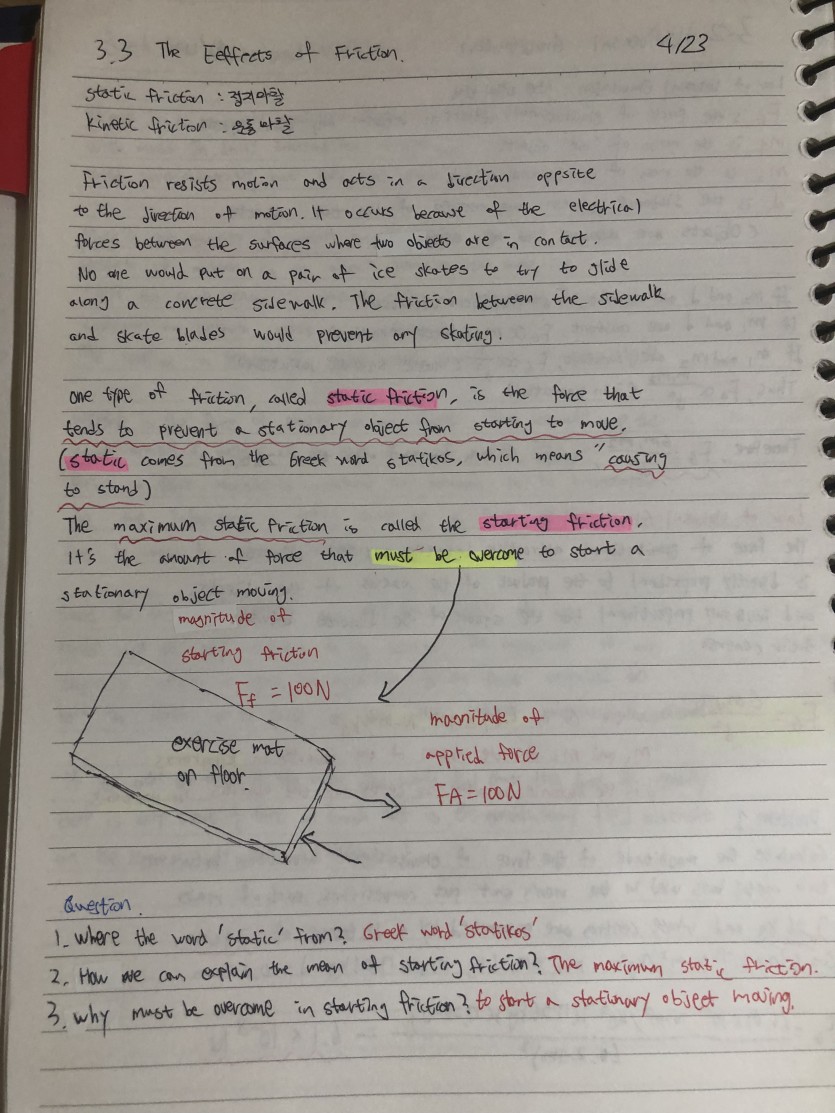 3.3 The Eeffects of Friction. 4/23
static friction : 정지마찰
kinetic friction : 운동마찰
Friction resists motion and acts in a direction oppsite
to the direction of motion. It occurs because of the electrical
forces between the surfaces where two objects are in contact.
No one would put on a pair of ice skates to try to glide
along a concrete sidewalk. The friction between the sidewalk
and skate blades would prevent any skating.
one type of friction, called static friction, is the force that
tends to prevent a stationary object from starting to move.
(static comes from the Greek word statikos, which means "causing
to stand)
The maximum static friction is called the starting friction.
It's the amount of force that must be overcome to start a
stationary object moving.
magnitude of
starting friction
Ff = 100N
exercise mat
on floor.
magnitude of
applied force
FA = 100N
Question.
1. where the word 'static' from? Greek word 'statikos'
2. How we can explain the mean of starting friction? The maximum static friction.
3. why must be overcome in starting friction? to start a stationary object moving.